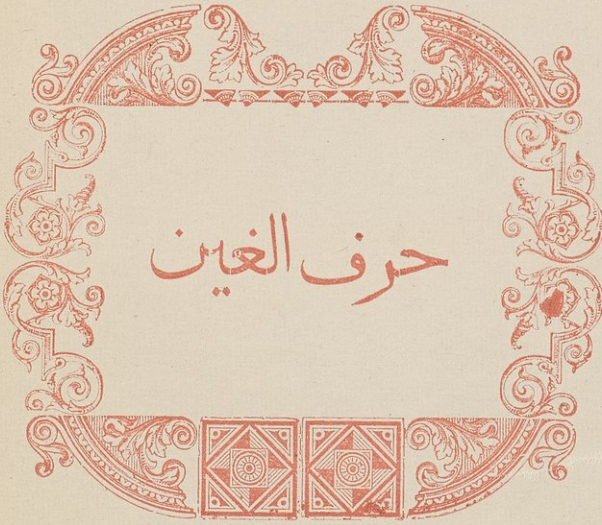 حرف الغين